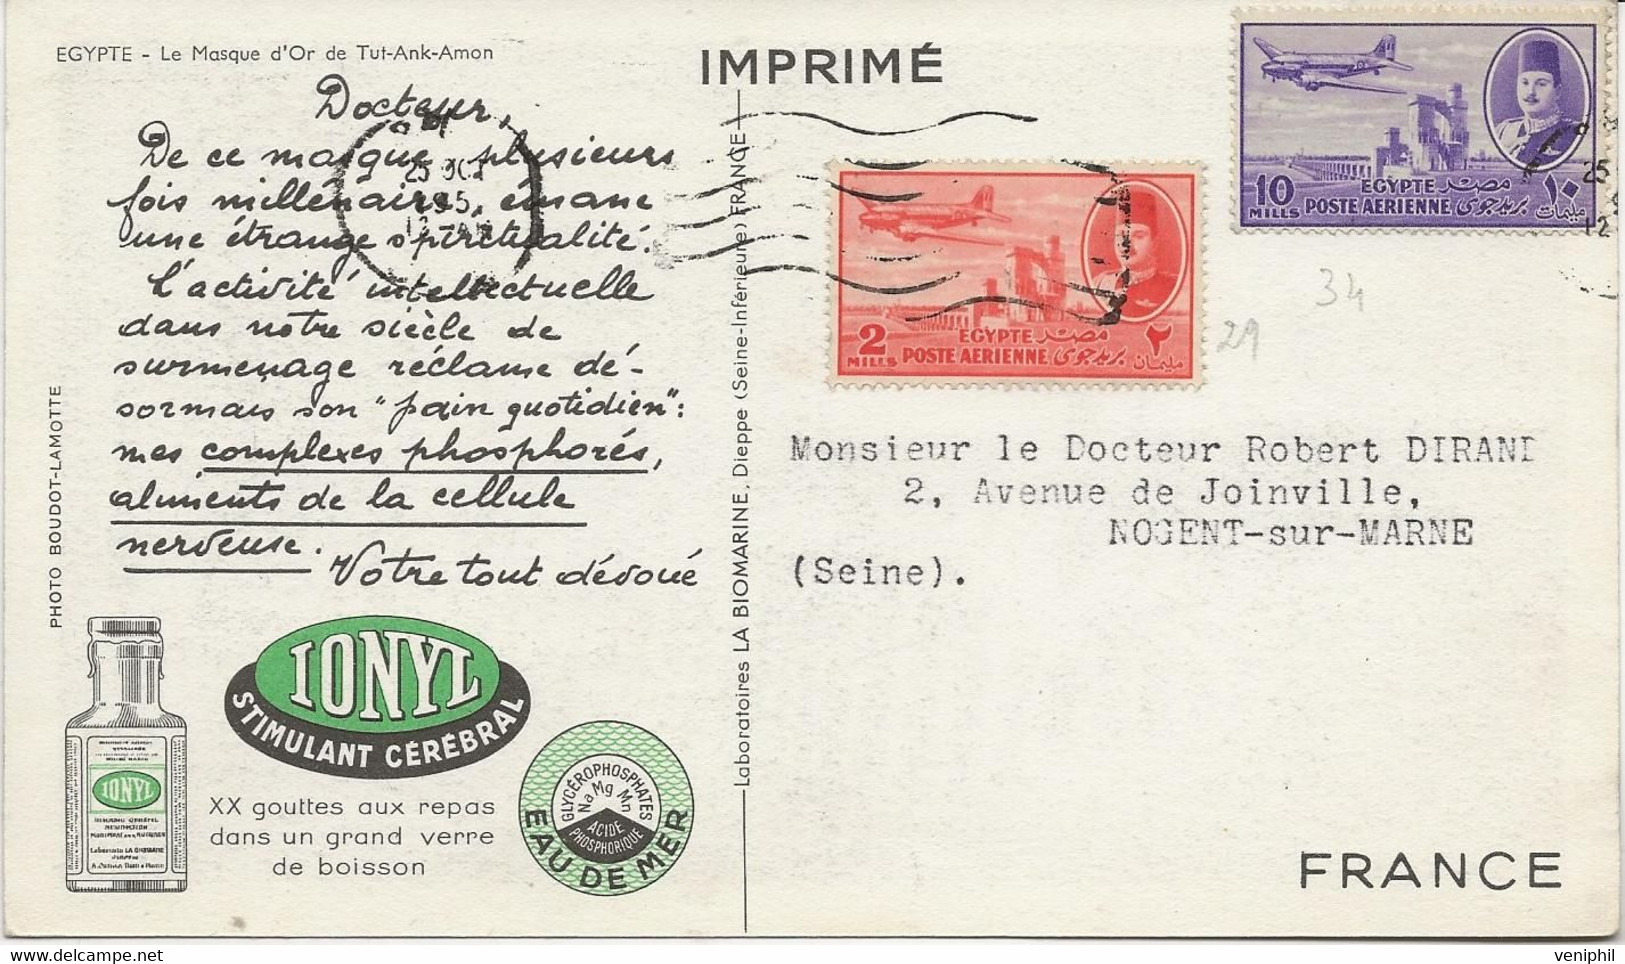 EGYPTE - Le Masque d'Or de Tut-Ank-Amon
IMPRIMÉ
Docteur,
De ce masque, plusieurs
fois millénaire, émane
une étrange spiritualité.
L'activité intellectuelle
dans notre siècle de
surmenage réclame dé-
sormais son "pain quotidien":
mes complexes phosphorés,
aliments de la cellule
nerveuse.
Votre tout dévoué
PHOTO BOUDOT-LAMOTTE
IONYL
STIMULANT CÉRÉBRAL
XX gouttes aux repas
dans un grand verre
de boisson
GLYCÉROPHOSPHATES
Na Mg Mn
ACIDE
PHOSPHORIQUE
EAU DE MER
IONYL
Laboratoires LA BIOMARINE, Dieppe (Seine-Inférieure) FRANCE
25 OCT
2
MILLS
EGYPTE مصر
POSTE AERIENNE بريد جوى
٢
مليمان
10
MILLS
EGYPTE مصر
POSTE AERIENNE بريد جوى
١٠
مليمات
25
12
34
29
Monsieur le Docteur Robert DIRAND
2, Avenue de Joinville,
NOGENT-sur-MARNE
(Seine).
FRANCE
veniphil